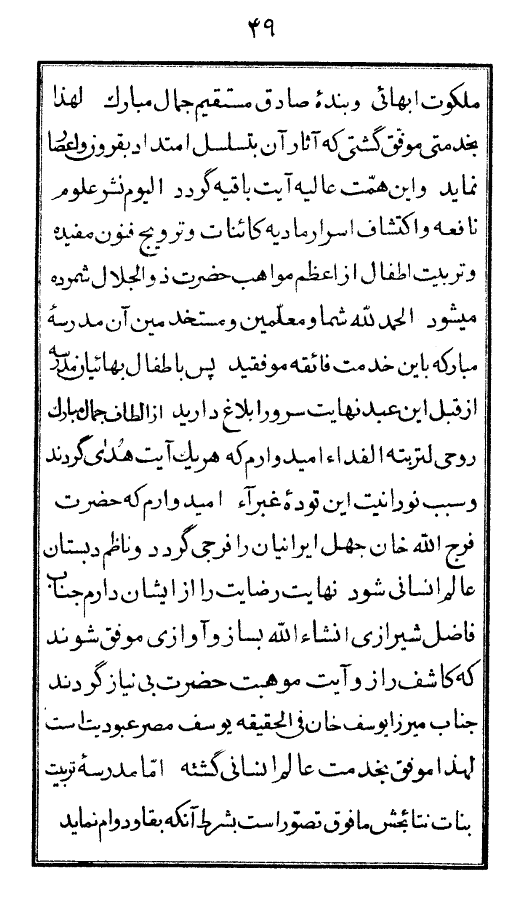 ۴۹
ملکوت ابهائی و بندهٔ صادق مستقیم جمال مبارک لهذا
بخدمتی موفق گشتی که آثار آن بتسلسل امتداد بقرون و اعصار
نماید و این همّت عالیه آیت باقیه گردد الیوم نشر علوم
نافعه و اکتشاف اسرار مادیه کائنات و ترویج فنون مفیده
و تربیت اطفال از اعظم مواهب حضرت ذوالجلال شمرده
میشود الحمد للّه شما و معلّمین و مستخدمین آن مدرسهٔ
مبارکه باین خدمت فائقه موفقید پس باطفال بهائیان مدرسه
از قبل این عبد نهایت سرور ابلاغ دارید از الطاف جمال مبارک
روحی لتربته الفداء امیدوارم که هر یک آیت هُدیٰ گردند
و سبب نورانیت این تودهٔ غبرآء امیدوارم که حضرت
فرج اللّه خان جهل ایرانیان را فرجی گردد و ناظم دبستان
عالم انسانی شود نهایت رضایت را از ایشان دارم جناب
فاضل شیرازی انشاء اللّه بساز و آوازی موفق شوند
که کاشف راز و آیت موهبت حضرت بی نیاز گردند
جناب میرزا یوسف خان فی الحقیقه یوسف مصر عبودیت است
لهذا موفق بخدمت عالم انسانی گشته امّا مدرسهٔ تربیت
بنات نتائجش مافوق تصوّر است بشرط آنکه بقا و دوام نماید